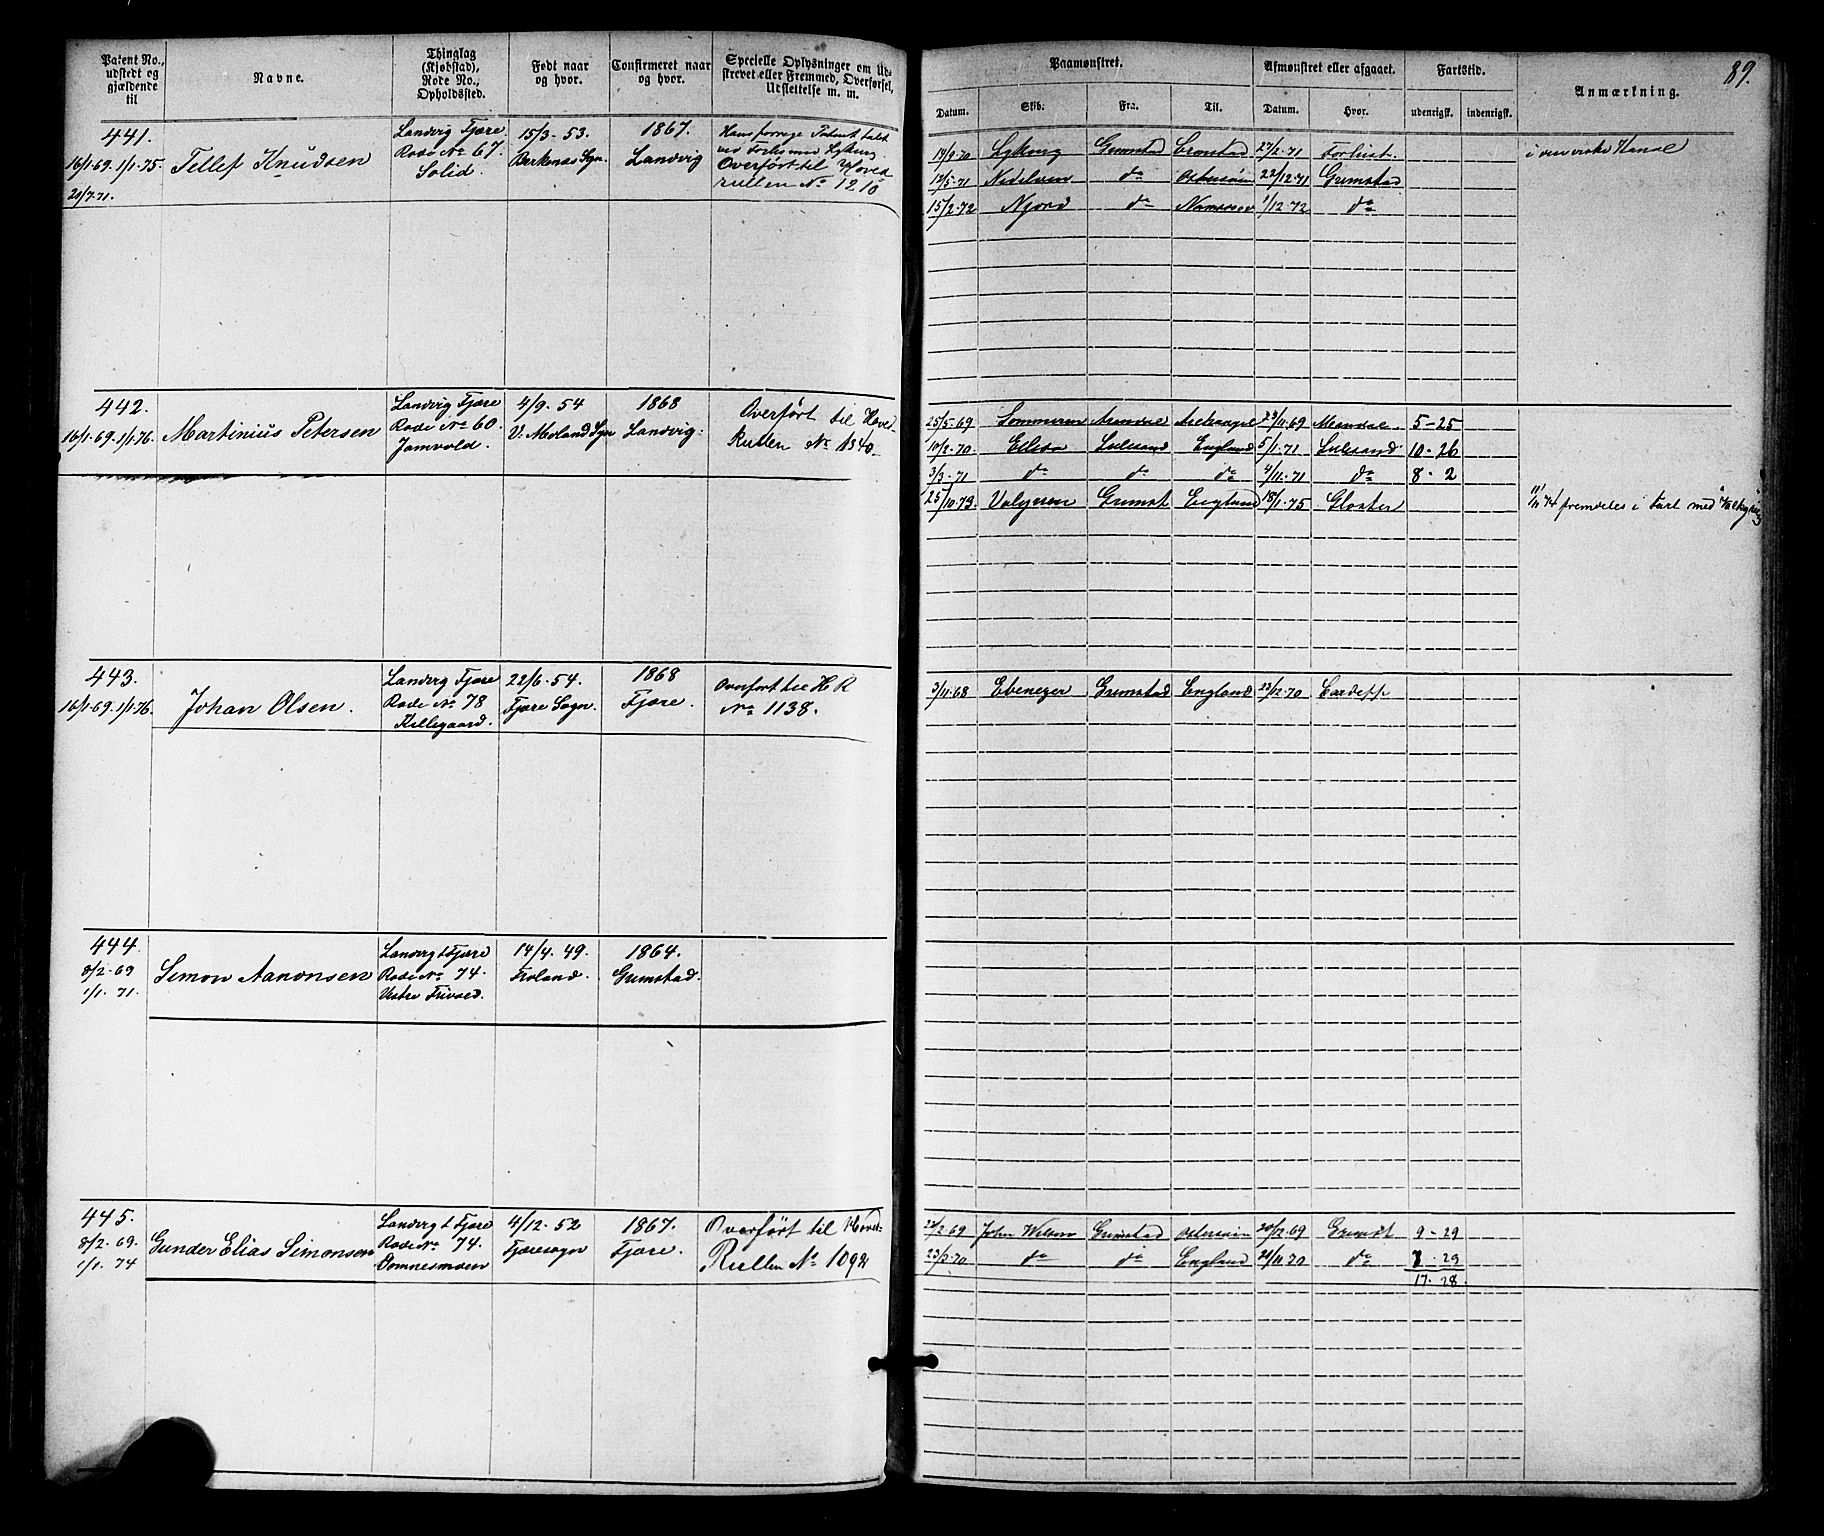 Patent No., udstedt og gjældende til
Navne.
Thinglag (Kjøbstad), Rode No., Opholdssted.
Født naar og hvor.
Confirmeret naar og hvor.
Specielle Oplysninger om Udskrevet eller Fremmed, Overførsel, Udslettelse m. m.
Paamønstret.
Afmønstret eller afgaaet.
Fartstid.
Anmærkning.
89.
Datum. Skib. Fra. Til. Datum. Hvor. udenrigsk. indenrigsk.
441.
16/1-69. 1/1-75.
20/7-71.
Tellef Knudsen
Landvig Fjære
Rode No 67.
Solid.
15/3-53.
Birkenæs Sgn.
1867.
Landvig
Overført til Hoved
rullen No 1210
14/9-70 Lykens Grimstad 27/2-71 Forliist.
12/5-71 Nidelven do Østersøen 22/12-71 Grimstad
15/2-72 Njord do 1/12-72 do
442.
16/1-69. 1/1-76.
Martinius Petersen
Landvig Fjære
Rode No 60.
4/9-54
V. Moland Sgn
1868
Landvig.
Overført til Hoved-
Rullen No 1340.
25/5-69 Arendal 23/11-69 Mandal. 5-25
10/2-70. Lillesand England 5/1-71 Lillesand 10-26
3/3-71 do do do 4/11-71 do 8-2
25/10-73. Valgerien Grimst England 18/1-75 Gloster
fremdeles i Fart med
443.
16/1-69. 1/1-76.
Johan Olsen.
Landvig Fjære
Rode No 78
Killegaard.
22/6-54.
Fjære Sogn.
1868
Fjære.
Overført til H R
No 1138.
3/11-68 Ebenezer Grimstad England 23/12-70 Cardeff
444.
8/2-69
1/1-71.
Simon Aanonsen
Landvig & Fjære
Rode No 74.
14/4-49.
Froland.
1864.
Grimstad.
445.
8/2-69.
1/1-74
Gunder Elias Simonsen
Landvig & Fjære
Rode No 74.
Dømnesmoen
4/12-52
Fjæresogn
1867.
Fjære.
Overført til Hoved-
Rullen No 1092
22/2-69 John Wilson Grimstad Østersøen 20/12-69 Grimst 9-29
23/2-70 do do England 21/11-70 do 7-29
17-28